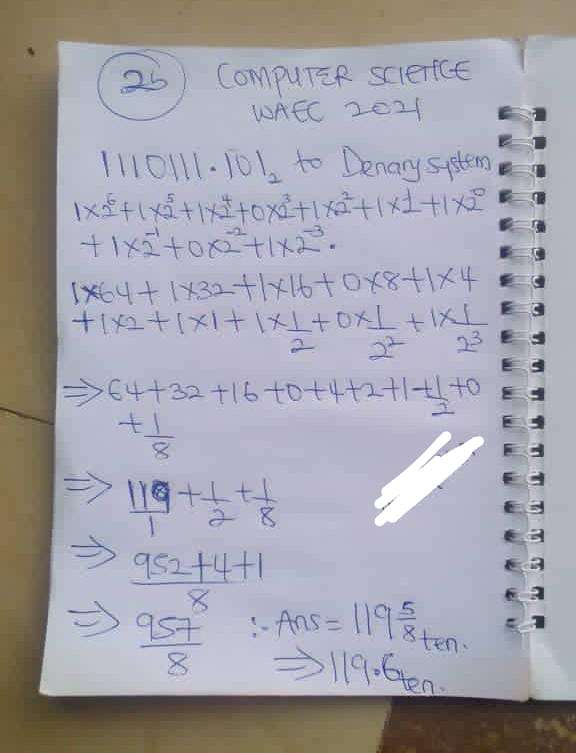 2b COMPUTER SCIENCE
WAEC 2021
1110111.101₂ to Denary system
1×2⁶+1×2⁵+1×2⁴+0×2³+1×2²+1×2¹+1×2⁰
+1×2⁻¹+0×2⁻²+1×2⁻³.
1×64+1×32+1×16+0×8+1×4
+1×2+1×1+1×1/2+0×1/2²+1×1/2³
⇒64+32+16+0+4+2+1+1/2+0
+1/8
⇒ 119/1+1/2+1/8
⇒ 952+4+1/8
⇒ 957/8 ∴ Ans=119 5/8 ten.
⇒119.6ten.